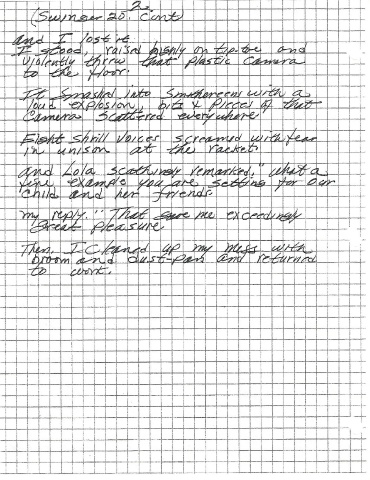 2.
(Swinger 20. Cont)
and I lost it.
I stood, raised highly on tip-toe and
violently threw that plastic camera
to the floor.
It smashed into smithereens with a
loud explosion, bits & pieces of that
camera scattered everywhere.
Eight shrill voices screamed with fear
in unison at the racket.
and Lola scathingly remarked, "what a
fine example you are setting for our
child and her friends.
my reply. "That gave me exceedingly
Great pleasure
Then, I cleaned up my mess with
broom and dust-pan and returned
to work.